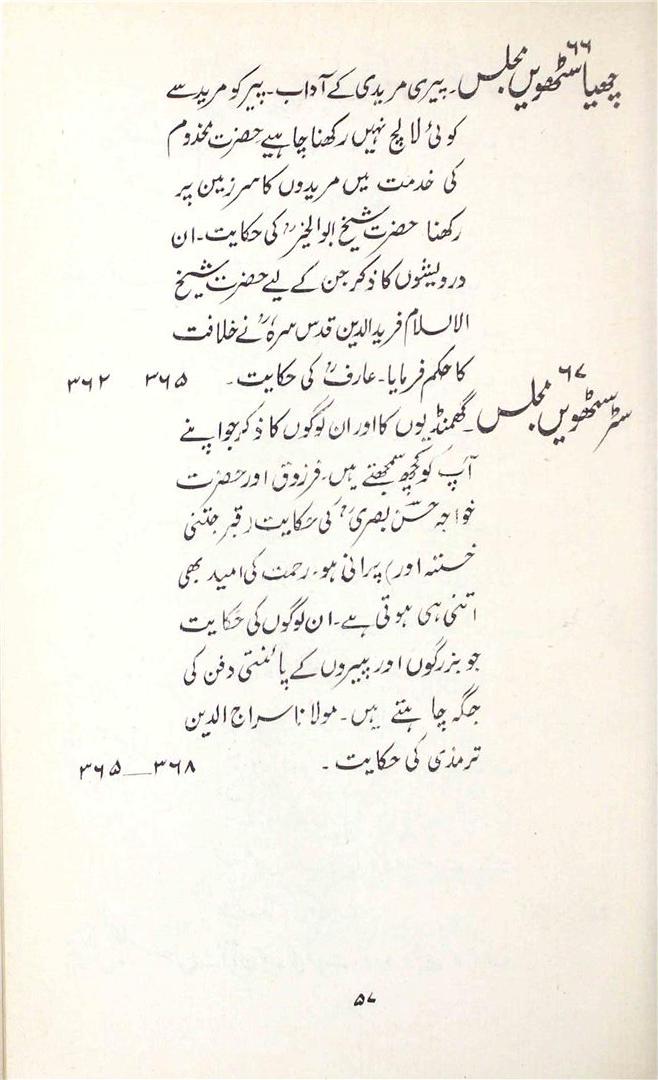 ۶۶
چھیاسٹھویں مجلس۔ پیری مریدی کے آداب۔ پیر کو مرید سے
کوئی لالچ نہیں رکھنا چاہیے حضرت مخدوم
کی خدمت میں مریدوں کا سر زمین پر
رکھنا حضرت شیخ ابوالخیرؒ کی حکایت۔ ان
درویشوں کا ذکر جن کے لیے حضرت شیخ
الاسلام فرید الدین قدس سرہٗ نے خلافت
کا حکم فرمایا۔ عارفؒ کی حکایت۔ ۳۶۵ ۳۶۲
۶۷
سٹرسٹھویں مجلس۔ گھمنڈیوں کا اور ان لوگوں کا ذکر جو اپنے
آپ کو کچھ سمجھتے ہیں۔ فرزوق اور حضرت
خواجہ حسن بصریؒ کی حکایت (قبر جتنی
خستہ اور) پرانی ہو۔ رحمت کی امید بھی
اتنی ہی ہوتی ہے۔ ان لوگوں کی حکایت
جو بزرگوں اور پیروں کے پائنتی دفن کی
جگہ چاہتے ہیں۔ مولانا سراج الدین
ترمذی کی حکایت۔ ۳۶۸—۳۶۵
۵۷